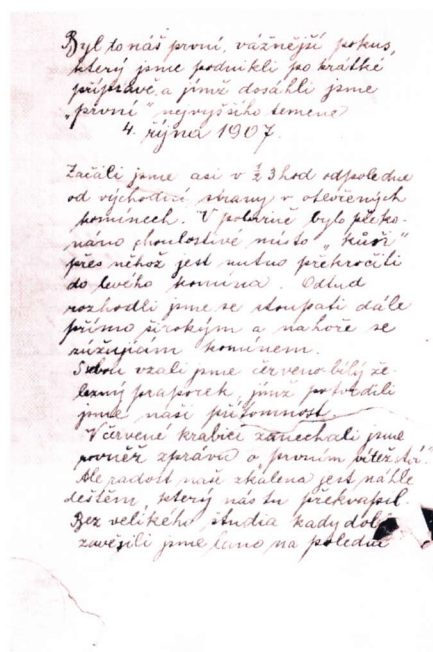 Byl to náš první, vážnější pokus,
který jsme podnikli po krátké
přípravě, a jímž dosáhli jsme
„první“ nejvyššího temene
4. října 1907.
Začali jsme asi v ½ 3 hod odpoledne
od východní strany v otevřených
komínech. V polovině bylo překo-
náno choulostivé místo „kůň“
přes něhož jest nutno překročiti
do levého komína. Odtud
rozhodli jsme se stoupati dále
přímo širokým a nahoře se
zúžujícím komínem.
Sebou vzali jsme červeno-bílý že-
lezný praporek, jímž potvrdili
jsme naši přítomnost.
V červené krabici zanechali jsme
rovněž zprávu o prvním vítězství.
Ale radost naše zkalena jest náhle
deštěm, který nás tu překvapil.
Bez velikého studia kady dolů
zavěsili jsme lano na polední